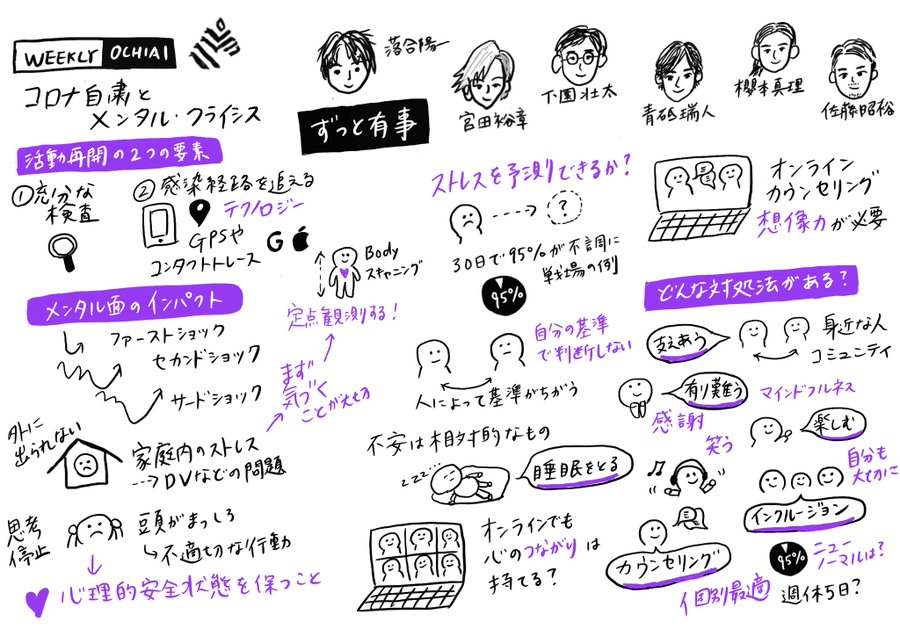 WEEKLY OCHIAI
コロナ自粛と
メンタル・クライシス
落合陽一
ずっと有事
宮田裕章
下園壮太
青砥瑞人
櫻本真理
佐藤昭裕
活動再開の2つの要素
①充分な
検査
②感染経路を追える
テクノロジー
GPSや
コンタクトトレース
G
Body
スキャニング
定点観測する！
メンタル面のインパクト
ファーストショック
セカンドショック
サードショック
まず
気づく
ことが大切
外に
出られない
家庭内のストレス
DVなどの問題
思考
停止
頭がまっしろ
不適切な行動
心理的安全状態を保つこと
ストレスを予測できるか？
?
30日で95%が不調に
戦場の例
95%
自分の基準
で判断しない
人によって基準がちがう
不安は相対的なもの
zzz...
睡眠をとる
オンラインでも
心のつながりは
持てる？
オンライン
カウンセリング
想像力が必要
どんな対処法がある？
支えあう
身近な人
コミュニティ
有り難う
感謝
マインドフルネス
笑う
楽しむ
自分も
大切に
インクルージョン
カウンセリング
個別最適
95%
ニュー
ノーマルは？
週休5日？